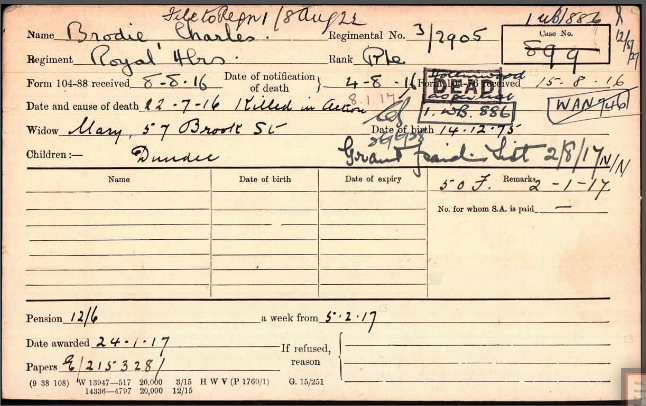 File to Regn 1 / 8 Aug 22
1 WB/886
Name Brodie Charles. Regimental No. 3/2905
Case No.
899
Regiment Royal Hrs. Rank Pte
Form 104-88 received 8-8-16 Date of notification of death } 4-8-16 Form 104- received 15-8-16
DEAD
1. WB. 886
Date and cause of death 22-7-16 Killed in Action
8.1.17
Widow Mary, 57 Brook St Date of birth 14.12.75
Children:— Dundee
Grant paid List 2/8/17 N/N
Name Date of birth Date of expiry Remarks.
50 F. 2-1-17
No. for whom S.A. is paid —
Pension 12/6 a week from 5.2.17
Date awarded 24-1-17
Papers E/215328/
If refused, reason {
(9 38 108) W 13947—517 20,000 3/15 H W V (P 1760/1) G. 15/251
14336—4797 20,000 12/15